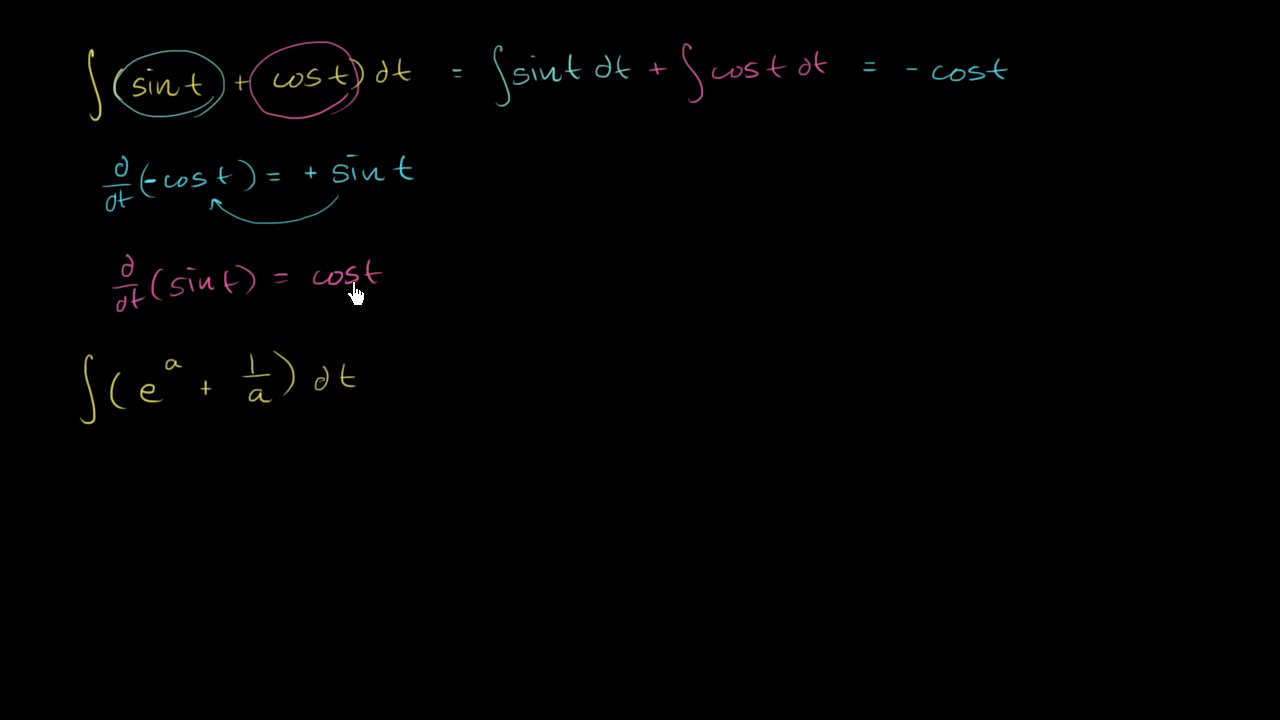 ∫(sin t + cos t) dt = ∫sin t dt + ∫cos t dt = - cos t
d/dt(-cos t) = + sin t
d/dt(sin t) = cos t
∫(e^a + 1/a) dt